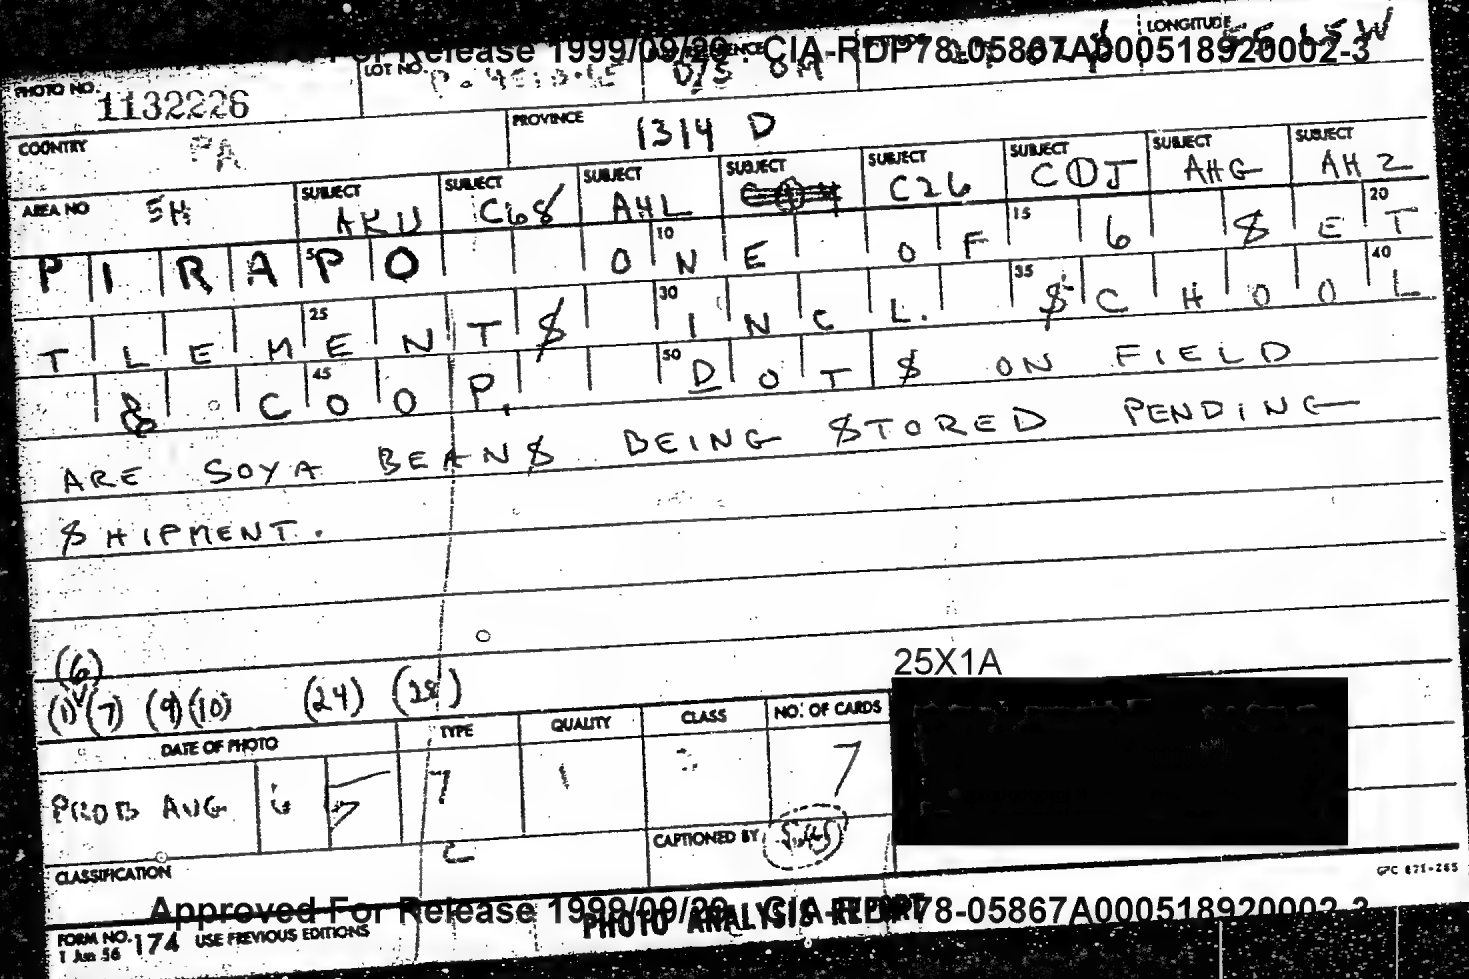 For Release 1999/09/20 : CIA-RDP78-05867A000518920002-3
LONGITUDE
PHOTO NO. 1132226 LOT NO.
COUNTRY PA PROVINCE 1314 D
AREA NO 5H SUBJECT AKU SUBJECT C68 SUBJECT A4L SUBJECT SUBJECT C26 SUBJECT C0J SUBJECT AHG SUBJECT AH2
PIRAPO ONE OF 6 SET
TLEMENTS INCL. SCHOOL
& COOP. DOTS ON FIELD
ARE SOYA BEANS BEING STORED PENDING
SHIPMENT.
25X1A
(6)
(1) (7) (9) (10) (24) (28)
DATE OF PHOTO TYPE QUALITY CLASS NO. OF CARDS
PROB AUG 7 1 7
CAPTIONED BY
C
CLASSIFICATION
GPC 871-265
Approved For Release 1999/09/20 : CIA-RDP78-05867A000518920002-3
PHOTO ANALYSIS REPORT
FORM NO. 174 USE PREVIOUS EDITIONS
1 Jun 56